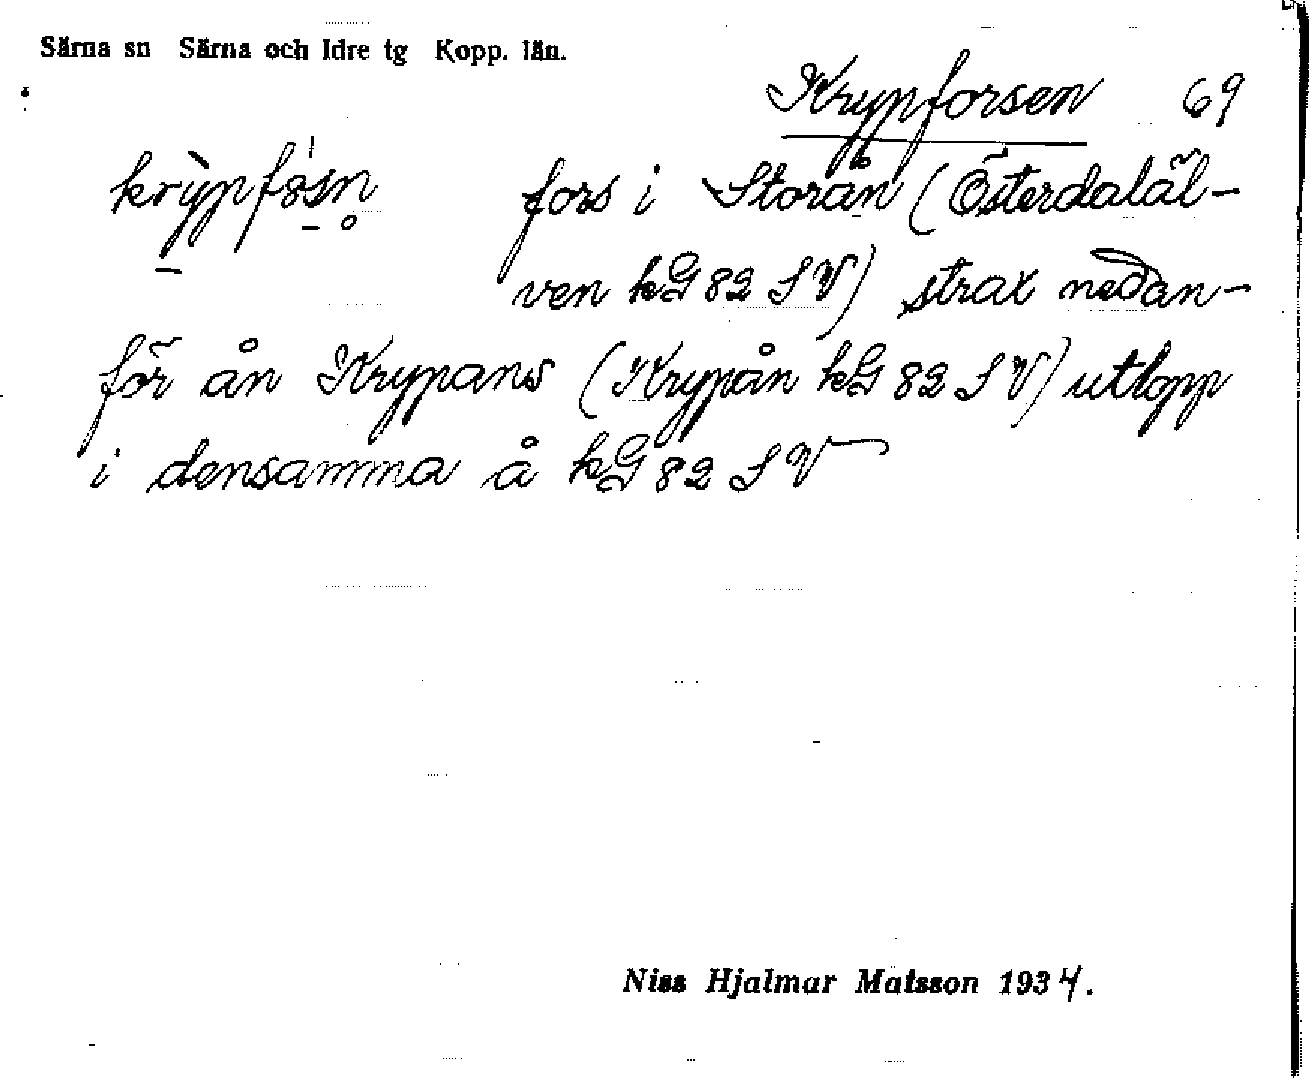 Särna sn Särna och Idre tg Kopp. län.
Krypforsen 69
fors i Storån (Österdaläl-
ven kG 82 S V) strax nedan-
för ån Krypans (Krypån kG 82 S V) utlopp
i densamma å kG 82 S V
Niss Hjalmar Matsson 1934.